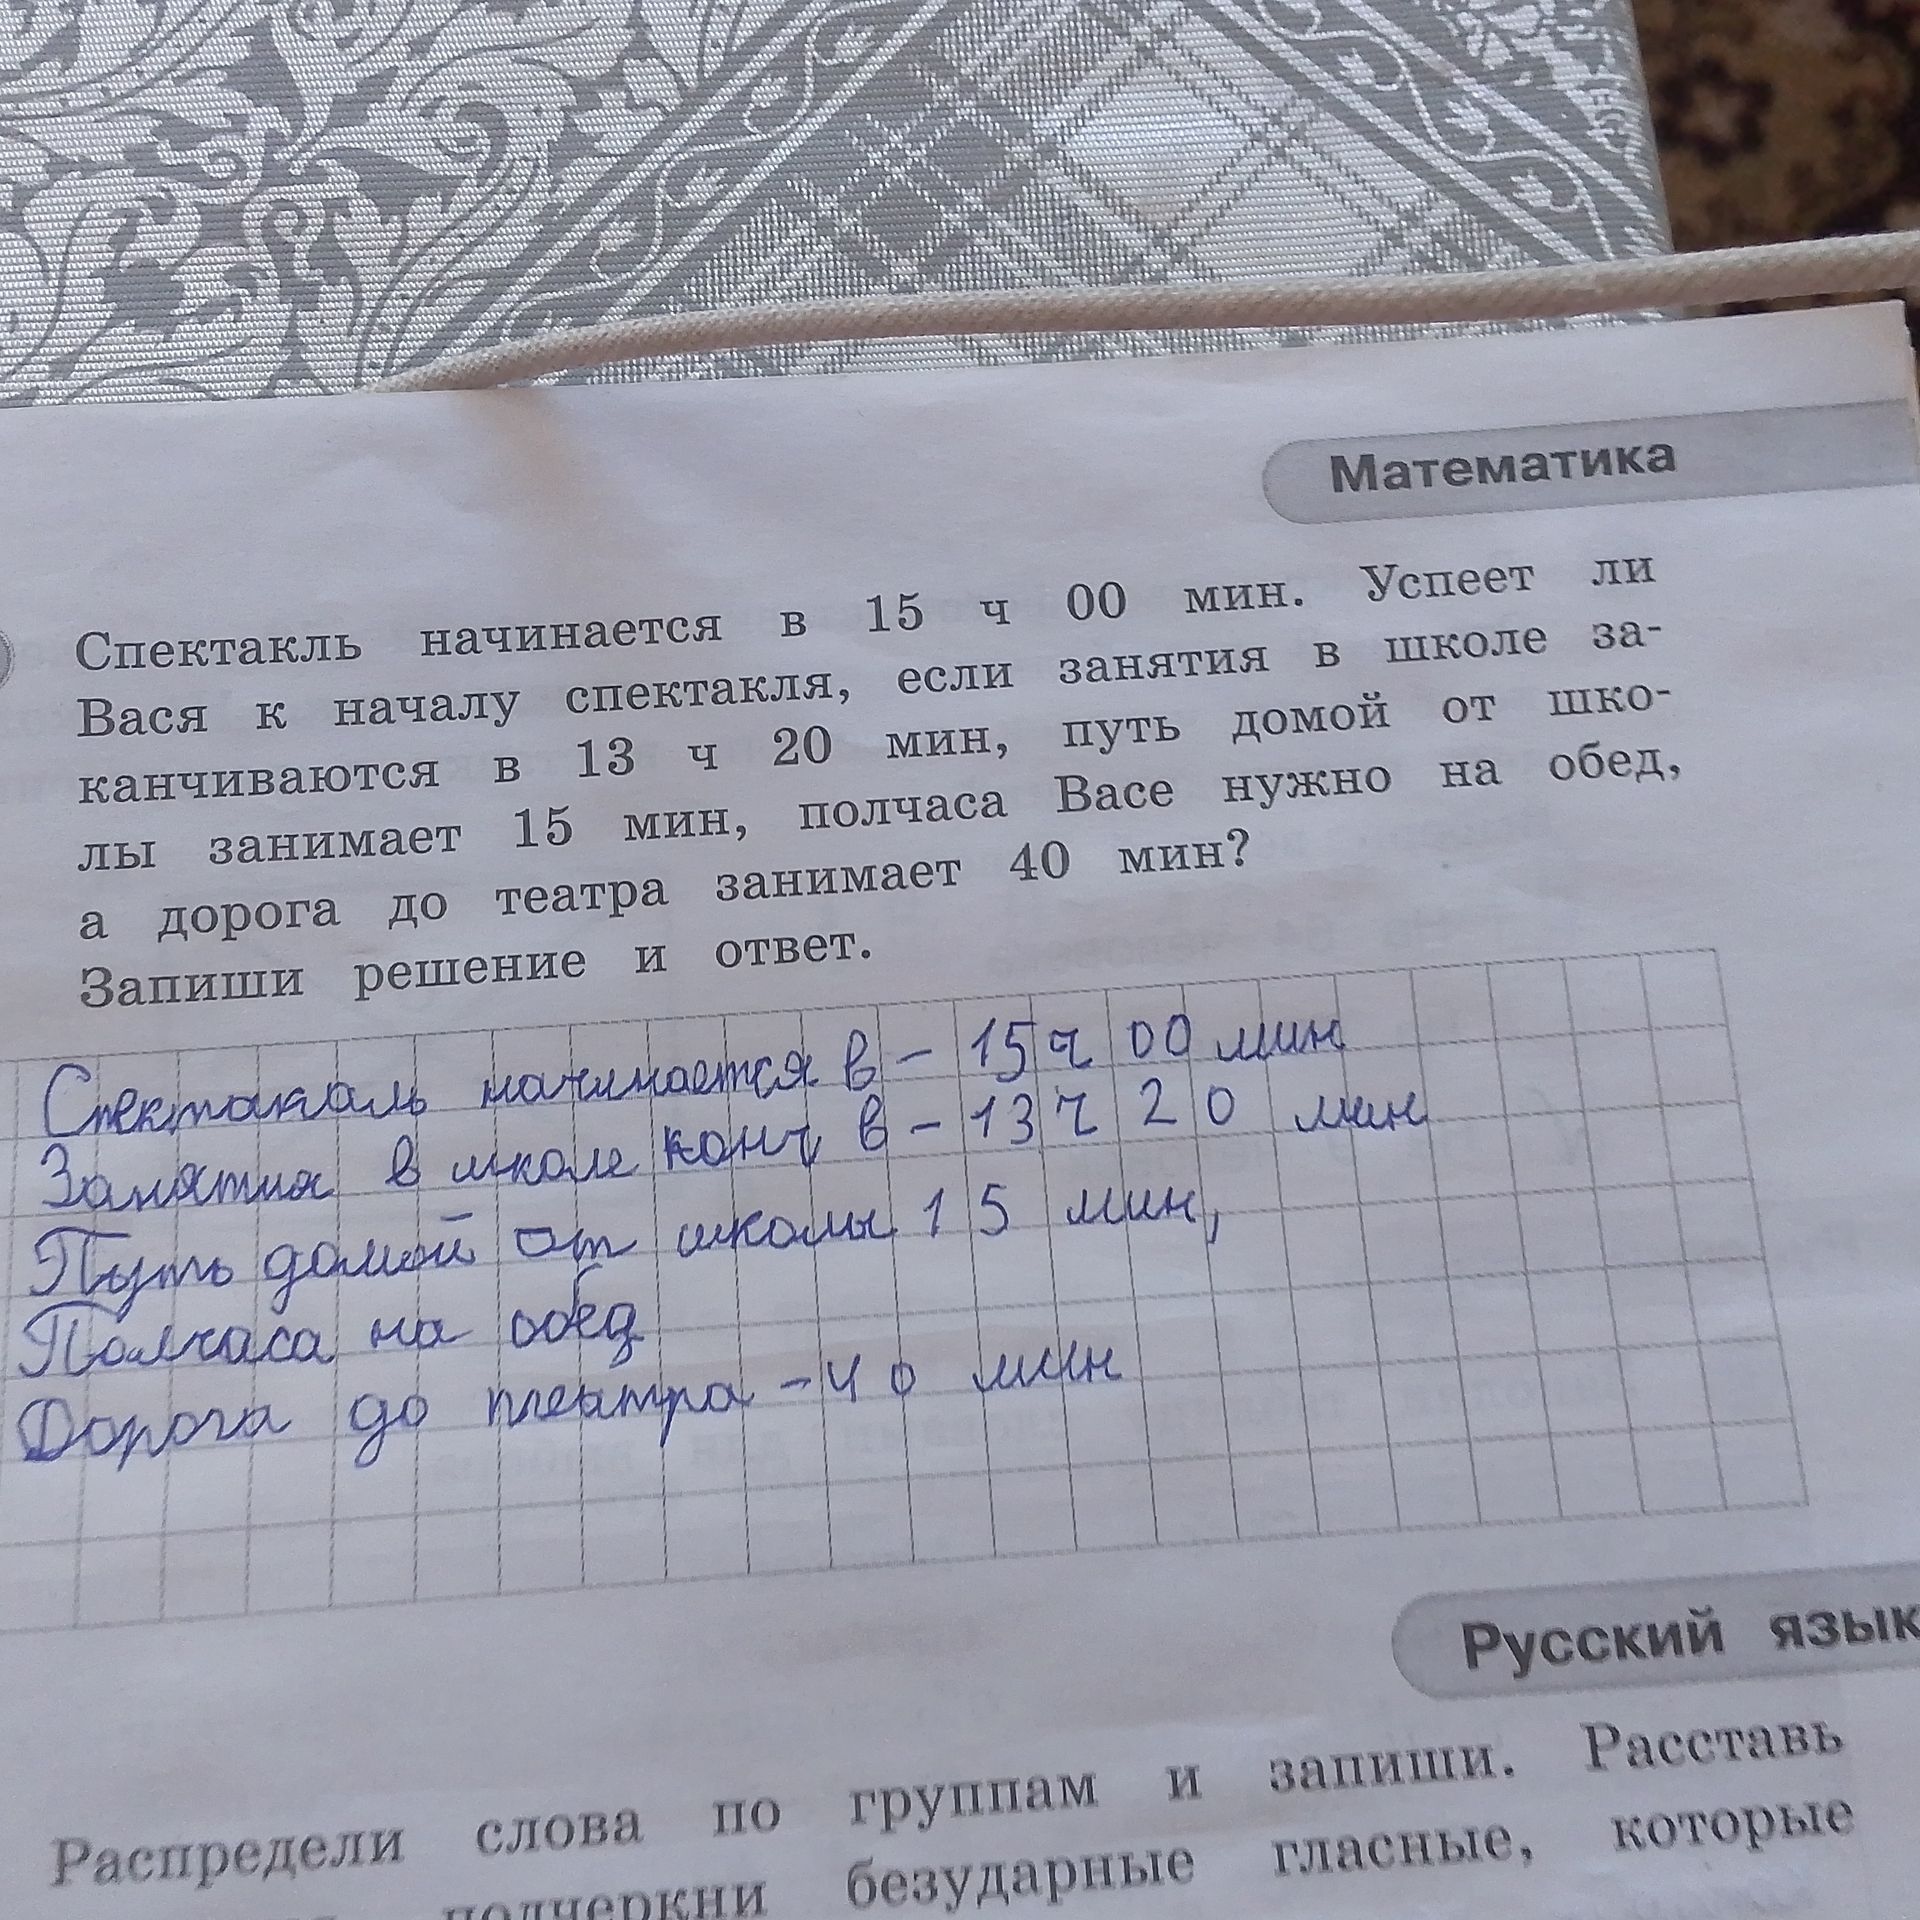 Математика
Спектакль начинается в 15 ч 00 мин. Успеет ли
Вася к началу спектакля, если занятия в школе за-
канчиваются в 13 ч 20 мин, путь домой от шко-
лы занимает 15 мин, полчаса Васе нужно на обед,
а дорога до театра занимает 40 мин?
Запиши решение и ответ.
Спектакаль начинается в - 15 ч 00 мин
Занятия в школе конч в - 13 ч 20 мин
Путь домой от школы 15 мин,
Полчаса на обед
Дорога до театра - 40 мин
Русский язык
Распредели слова по группам и запиши. Расставь
подчеркни безударные гласные, которые